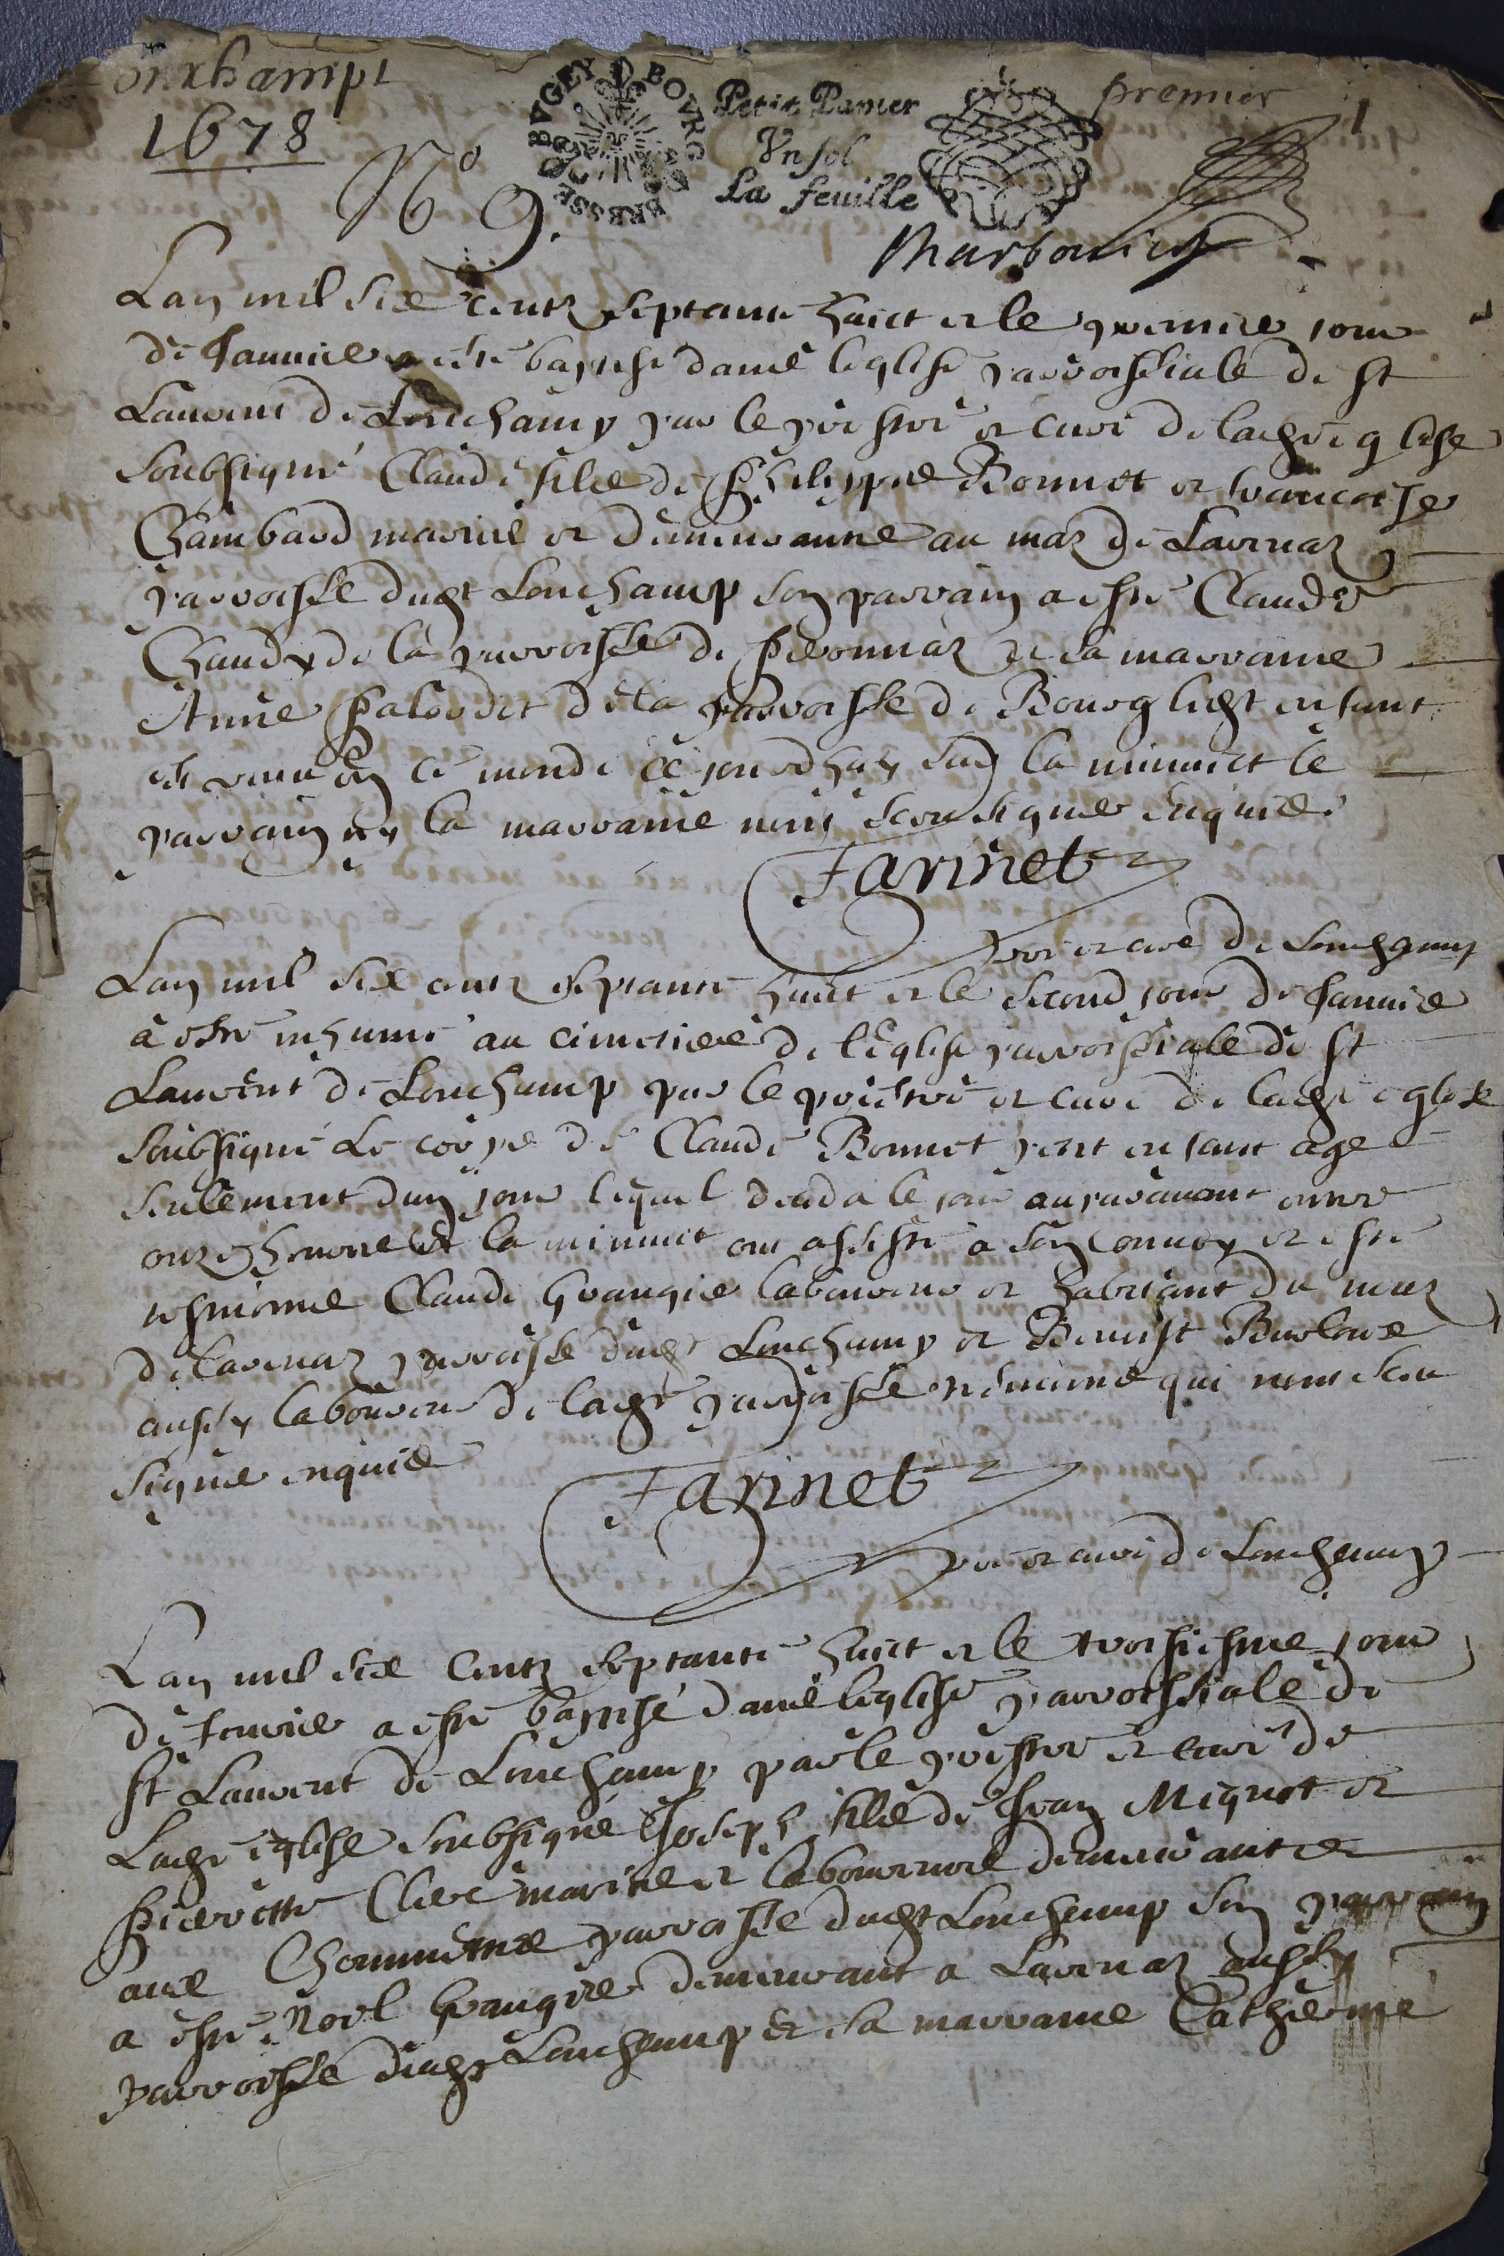 onchampt
premier 1
1678
BVGEY BOVRG BRESSE
Petit Papier
Vn sol
La feuille
N° 9.
Lan mil six centz septante huict et le premier jour
de Januier a esté baptisé dans leglise parroissiale de st
Laurent de Lonchamp par le prestre et curé de ladte eglise
soubsigné Claude fils de Philippe Bonnet et francoise
Chambard mariés et demeurants au mas de Lauernaz
parroisse dudt Lonchamp son parrain a esté Claude
Chaudy de la parroisse de Pieronnaz et sa marraine
Anne de la parroisse de Bourg ledt enfant
est venu en ce monde ce jourdhuy sur la minuict le
parrain ny la marraine nont sceu signer enquis.
Farinet
pbre et curé de Lonchamp
Lan mil six centz septante huict et le second jour de Januier
a esté inhumé au cimetiere de leglise parroissiale de st
Laurent de Lonchamp par le prestre et curé de ladte eglise
soubsigné Le corps de Claude Bonnet petit enfant agé
seulement dun jour lequel deceda le jour auparauant entre
onze heures et la minuit ont assisté a son conuoy et esté
tesmoins Claude Grangier laboureur et habitant du mas
de Lauernaz parroisse dudt Lonchamp et Benoist
aussy laboureur de ladte parroisse qui nont sceu
signer enquis
Farinet
pbre et curé de Lonchamp
Lan mil six centz septante huict et le troisiesme jour
de Januier a esté baptisé dans leglise parroissiale de
st Laurent de Lonchamp par le prestre et curé de
Ladte eglise soubsigné Joseph fils de Jean Mignot et
Pierrette Clerc mariés et laboureurs demeurants
aux parroisse dudt Lonchamp son parrain
a esté Noel Grangier demeurant a Lauernaz aussy
parroisse dudt Lonchamp et sa marraine Catherine